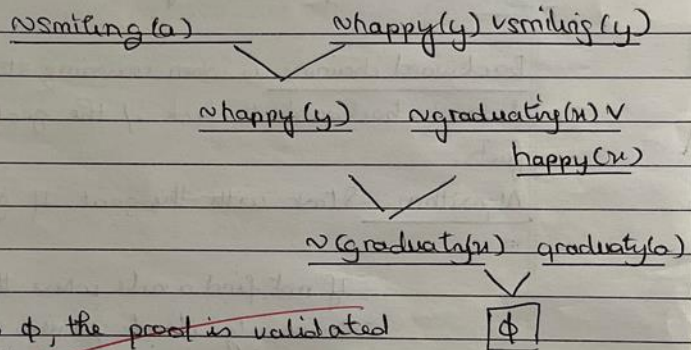 ~smiling(a) ~happy(y) vsmiling(y)
~happy(y) ~graduating(x) v
happy(x)
~(graduatg(x) graduaty(a)
ϕ, the proof is validated ϕ